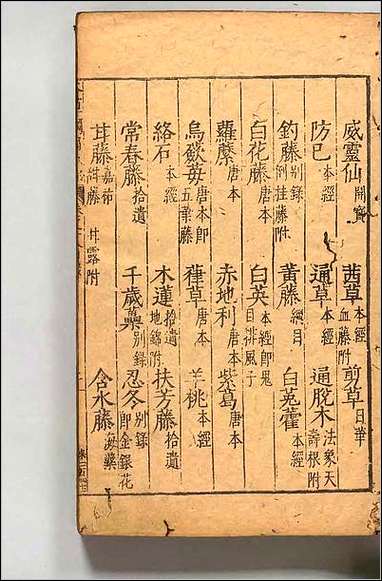 威靈仙開寶　茜草本經血藤附　剪草日華
防巳本經　通草本經　通脫木法象天壽根附
釣藤別錄倒挂藤附　黃藤綱目　白兎藿本經
白花藤唐本　白英本經即鬼目排風子
蘿藦唐本　赤地利唐本　紫葛唐本
烏蘞莓唐本即五葉藤　葎草唐本　羊桃本經
絡石本經　木蓮拾遺地錦附　扶芳藤拾遺
常春藤拾遺　千歲蘽別錄　忍冬別錄即金銀花
甘藤嘉祐甜藤　甘露附　含水藤海藥